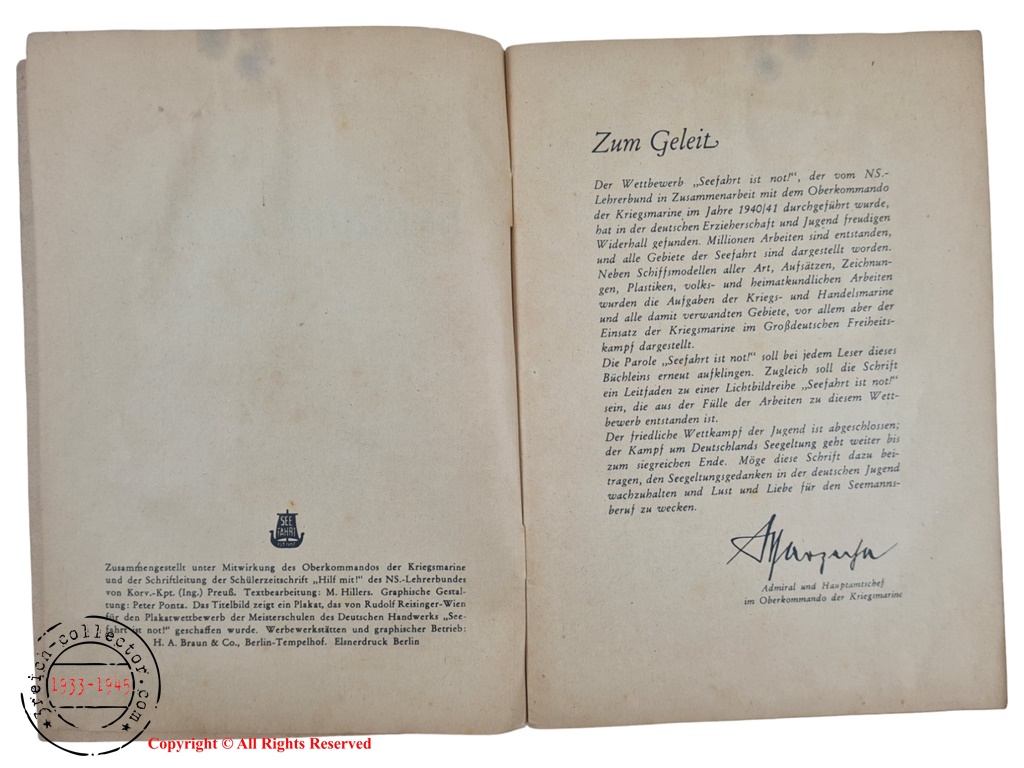 SEE
FAHRT
IST NOT!
Zusammengestellt unter Mitwirkung des Oberkommandos der Kriegsmarine
und der Schriftleitung der Schülerzeitschrift „Hilf mit!" des NS.-Lehrerbundes
von Korv.-Kpt. (Ing.) Preuß. Textbearbeitung: M. Hillers. Graphische Gestal-
tung: Peter Ponta. Das Titelbild zeigt ein Plakat, das von Rudolf Reisinger-Wien
für den Plakatwettbewerb der Meisterschulen des Deutschen Handwerks „See-
fahrt ist not!" geschaffen wurde. Werbewerkstätten und graphischer Betrieb:
H. A. Braun & Co., Berlin-Tempelhof. Elsnerdruck Berlin
Zum Geleit
Der Wettbewerb „Seefahrt ist not!", der vom NS.-
Lehrerbund in Zusammenarbeit mit dem Oberkommando
der Kriegsmarine im Jahre 1940/41 durchgeführt wurde,
hat in der deutschen Erzieherschaft und Jugend freudigen
Widerhall gefunden. Millionen Arbeiten sind entstanden,
und alle Gebiete der Seefahrt sind dargestellt worden.
Neben Schiffsmodellen aller Art, Aufsätzen, Zeichnun-
gen, Plastiken, volks- und heimatkundlichen Arbeiten
wurden die Aufgaben der Kriegs- und Handelsmarine
und alle damit verwandten Gebiete, vor allem aber der
Einsatz der Kriegsmarine im Großdeutschen Freiheits-
kampf dargestellt.
Die Parole „Seefahrt ist not!" soll bei jedem Leser dieses
Büchleins erneut aufklingen. Zugleich soll die Schrift
ein Leitfaden zu einer Lichtbildreihe „Seefahrt ist not!"
sein, die aus der Fülle der Arbeiten zu diesem Wett-
bewerb entstanden ist.
Der friedliche Wettkampf der Jugend ist abgeschlossen;
der Kampf um Deutschlands Seegeltung geht weiter bis
zum siegreichen Ende. Möge diese Schrift dazu bei-
tragen, den Seegeltungsgedanken in der deutschen Jugend
wachzuhalten und Lust und Liebe für den Seemanns-
beruf zu wecken.
Admiral und Hauptamtschef
im Oberkommando der Kriegsmarine
3reich-collector.com
1933-1945
Copyright © All Rights Reserved